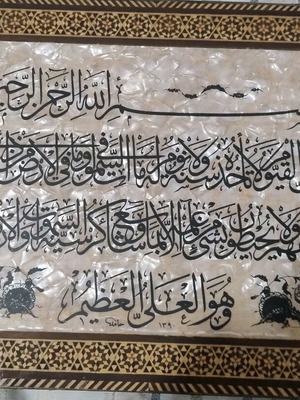 بسم الله الرحمن الرحيم
القيوم لا تأخذه سنة ولا نوم له ما في السموات وما في الأرض
ولا يحيطون بشيء من علمه إلا بما شاء وسع كرسيه السموات
وهو العلي العظيم
حامد ١٣٩